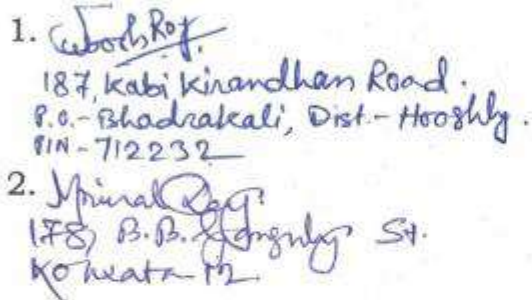 1. Roy.
187, Kabi Kirandhan Road.
P.O.- Bhadrakali, Dist.- Hooghly.
PIN - 712232
2. Mrinal
178, B.B. Ganguly St.
Kolkata-12